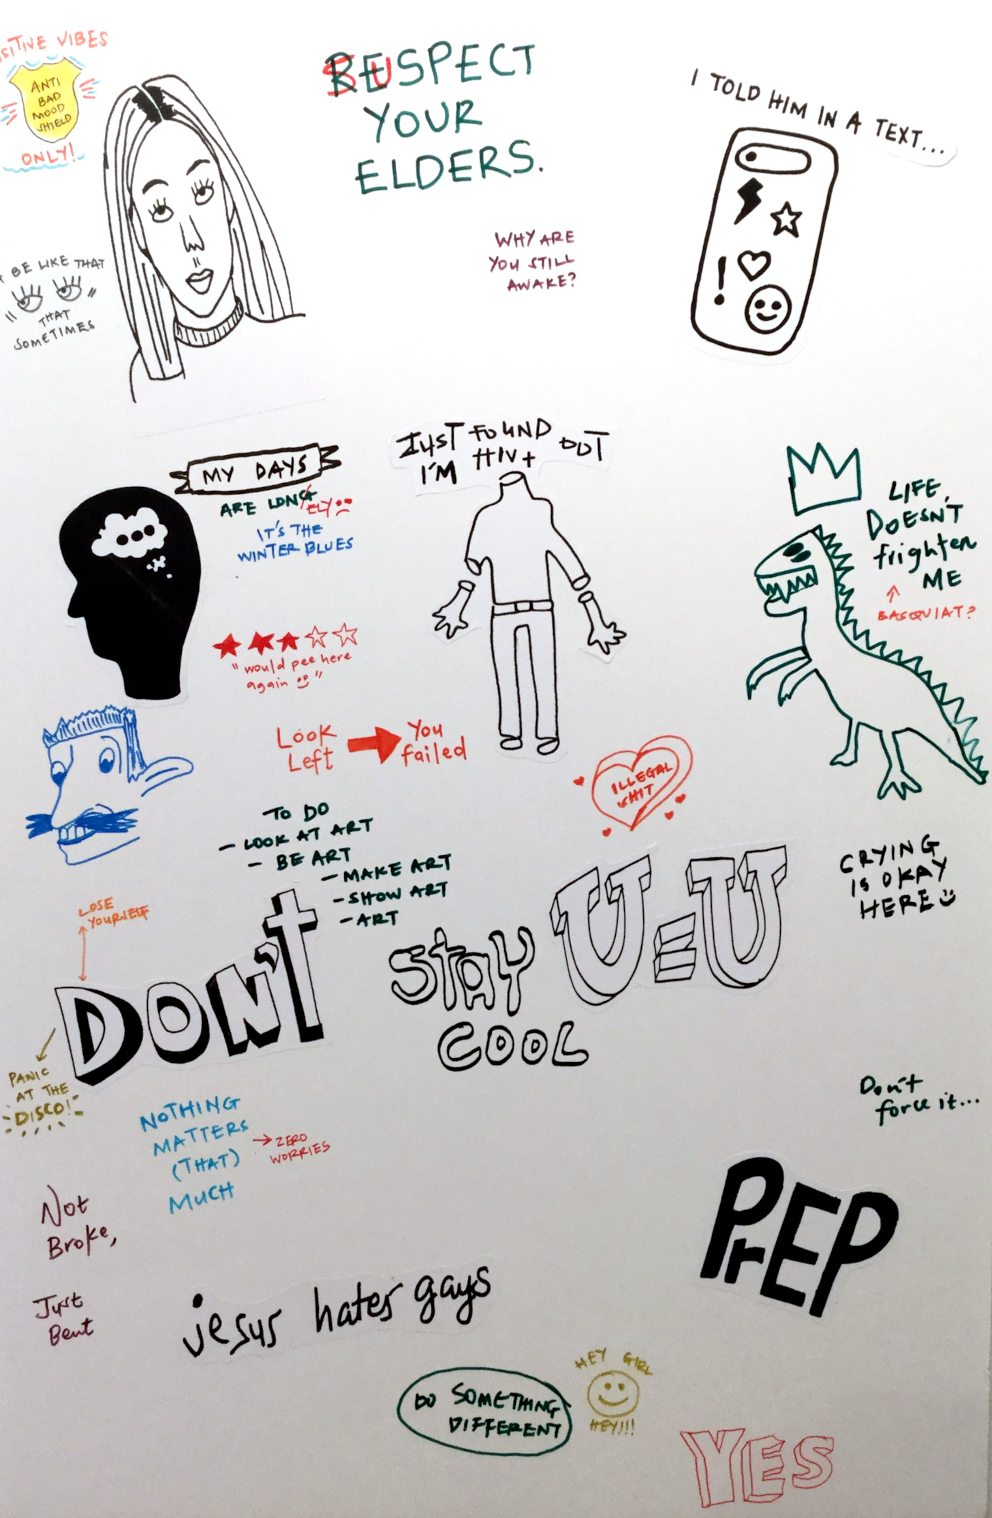 SITIVE VIBES
ANTI
BAD
MOOD
SHIELD
ONLY!
RESPECT
YOUR
ELDERS.
I TOLD HIM IN A TEXT...
WHY ARE
YOU STILL
AWAKE?
T BE LIKE THAT
THAT
SOMETIMES
MY DAYS
ARE LONG
ELY
IT'S THE
WINTER BLUES
JUST FOUND OUT
I'M HIV+
LIFE
DOESN'T
frighten
ME
BASQUIAT?
"would pee here
again"
Look
Left
You
failed
ILLEGAL
SHIT
TO DO
- LOOK AT ART
- BE ART
- MAKE ART
- SHOW ART
- ART
CRYING
IS OKAY
HERE
LOSE
YOURSELF
DON'T
STAY
COOL
U=U
PANIC
AT THE
DISCO!
NOTHING
MATTERS
(THAT)
MUCH
ZERO
WORRIES
Don't
force it...
Not
Broke,
Just
Bent
PrEP
jesus hates gays
DO SOMETHING
DIFFERENT
HEY GIRL
HEY!!!
YES